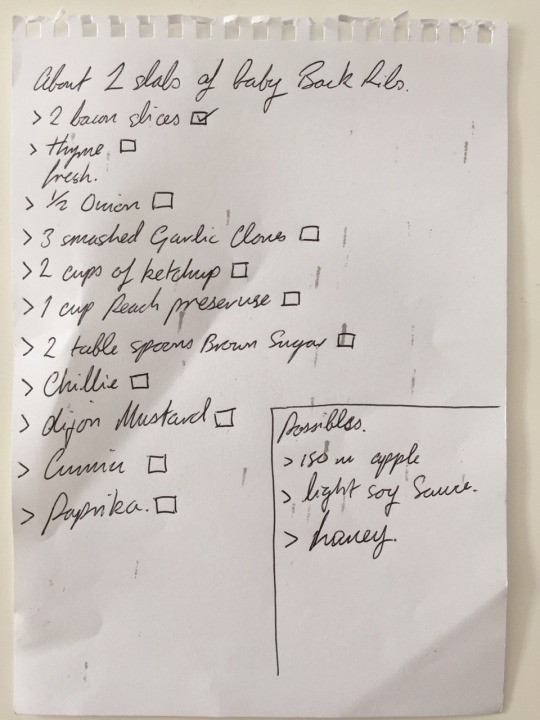 About 2 slabs of baby Back Ribs.
> 2 bacon slices
> thyme
fresh.
> ½ Onion
> 3 smashed Garlic Cloves
> 2 cups of ketchup
> 1 cup Peach preseruse
> 2 table spoons Brown Sugar
> Chillie
> dijon Mustard
> Cumin
> Paprika.
Possibles.
> 150 m apple
> light soy Sauce.
> honey.